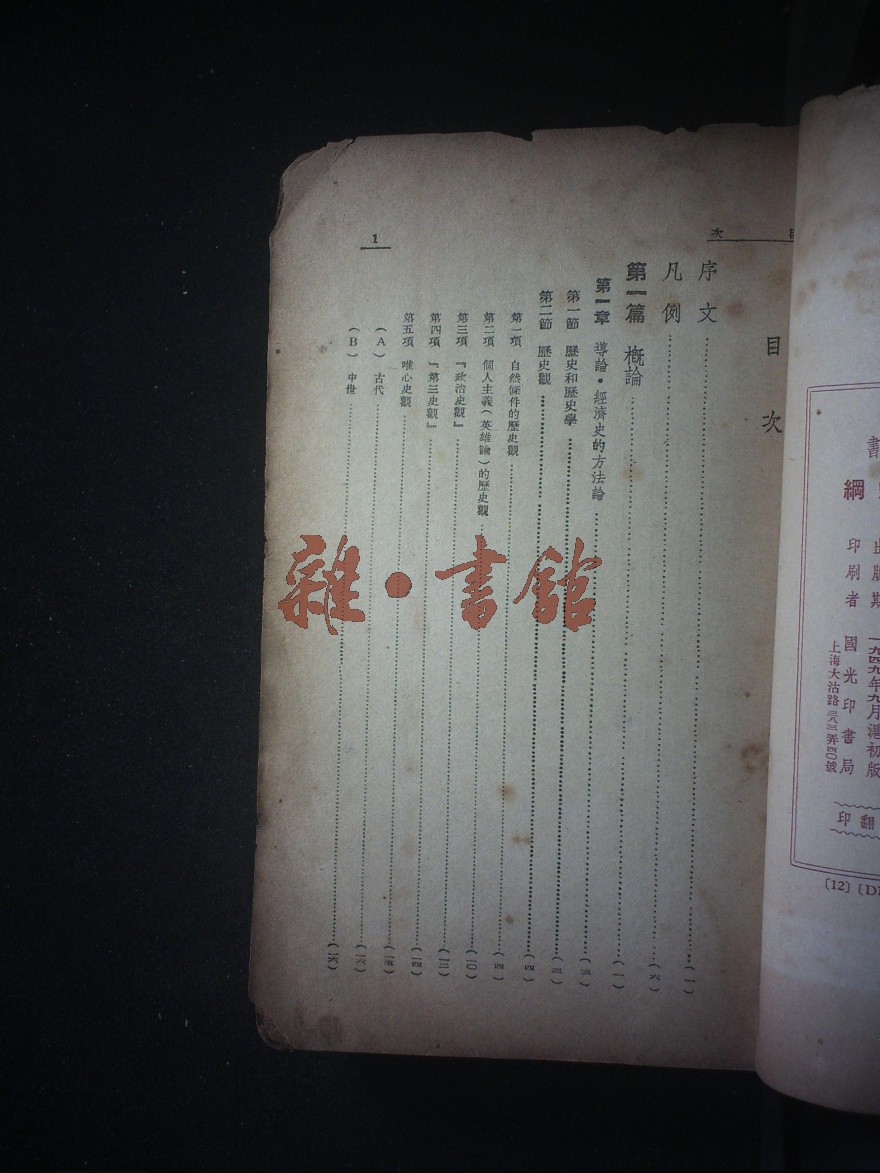 次
1
目次
序文……(一)
凡例……(六)
第一篇 概論……(一)
第一章 導論・經濟史的方法論……(三)
第一節 歷史和歷史學……(三)
第二節 歷史觀……(四)
第一項 自然條件的歷史觀……(四)
第二項 個人主義(英雄論)的歷史觀……(一〇)
第三項 『政治史觀』……(一三)
第四項 『第三史觀』……(一四)
第五項 唯心史觀……(一五)
(A) 古代……(一五)
(B) 中世……(一六)
雜・書館
書
綱
出版期
一九四九年九月滬初版
印刷者 國光印書局
上海大沽路
弄四〇號
印翻
〔12〕〔D